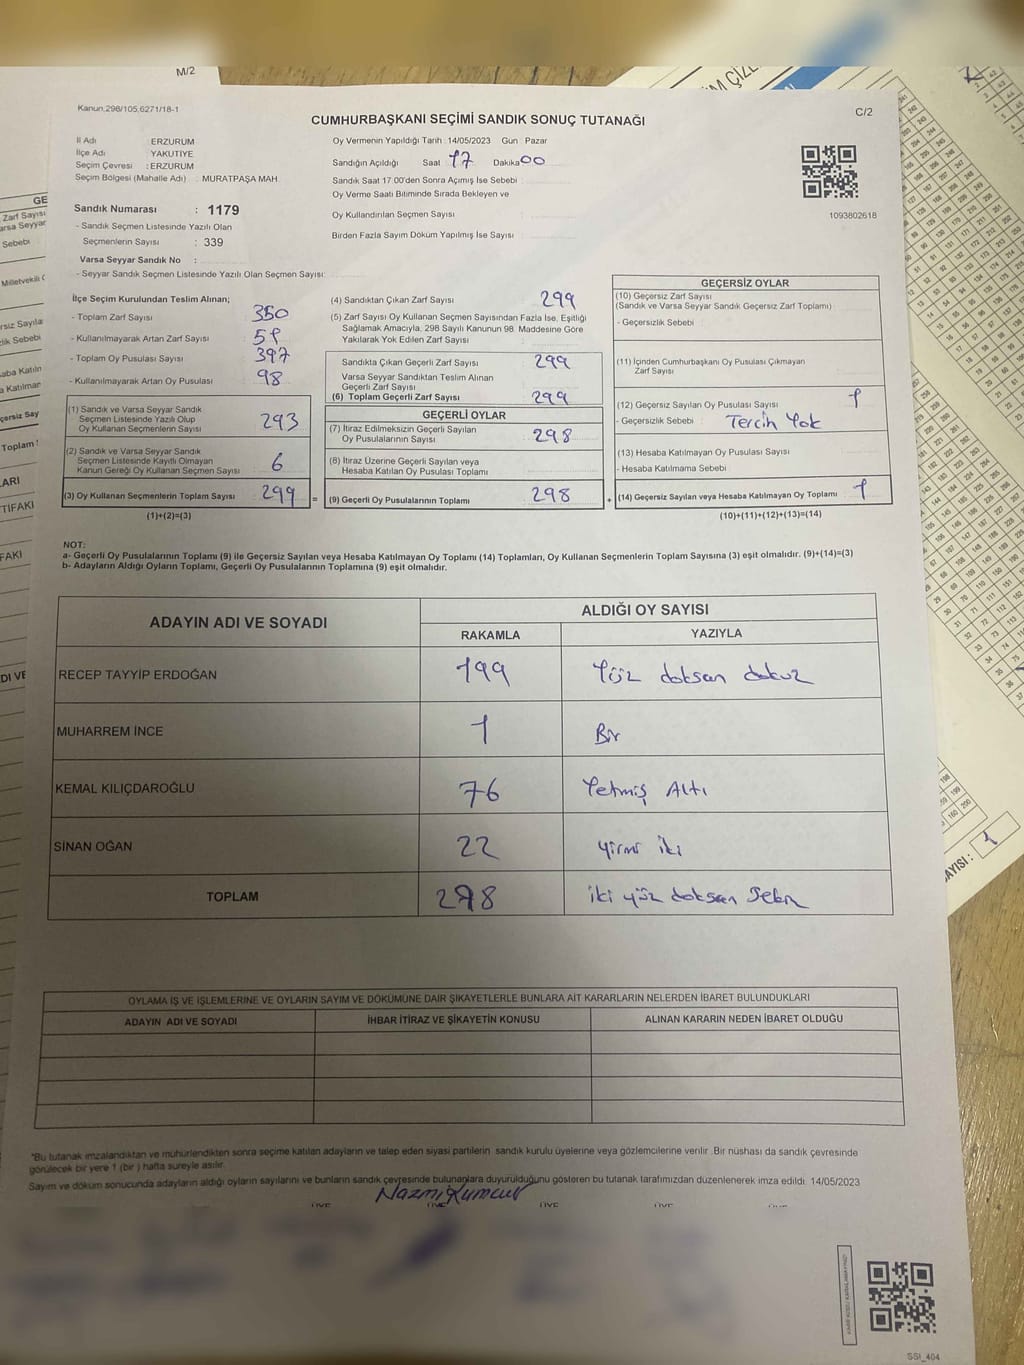 M/2
Kanun.298/105,6271/18-1
C/2
CUMHURBAŞKANI SEÇİMİ SANDIK SONUÇ TUTANAĞI
İl Adı : ERZURUM
İlçe Adı : YAKUTİYE
Seçim Çevresi : ERZURUM
Seçim Bölgesi (Mahalle Adı) : MURATPAŞA MAH.
Oy Vermenin Yapıldığı Tarih : 14/05/2023 Gün Pazar
Sandığın Açıldığı Saat 17 Dakika 00
Sandık Saat 17.00'den Sonra Açımış İse Sebebi
Oy Verme Saati Bitiminde Sırada Bekleyen ve
Oy Kullandırılan Seçmen Sayısı
Birden Fazla Sayım Döküm Yapılmış İse Sayısı
1093802618
Sandık Numarası : 1179
- Sandık Seçmen Listesinde Yazılı Olan
Seçmenlerin Sayısı : 339
Varsa Seyyar Sandık No :
- Seyyar Sandık Seçmen Listesinde Yazılı Olan Seçmen Sayısı:
İlçe Seçim Kurulundan Teslim Alınan;
- Toplam Zarf Sayısı 350
- Kullanılmayarak Artan Zarf Sayısı 51
- Toplam Oy Pusulası Sayısı 397
- Kullanılmayarak Artan Oy Pusulası 98
(1) Sandık ve Varsa Seyyar Sandık
Seçmen Listesinde Yazılı Olup
Oy Kullanan Seçmenlerin Sayısı 293
(2) Sandık ve Varsa Seyyar Sandık
Seçmen Listesinde Kayıtlı Olmayan
Kanun Gereği Oy Kullanan Seçmen Sayısı 6
(3) Oy Kullanan Seçmenlerin Toplam Sayısı 299 =
(1)+(2)=(3)
(4) Sandıktan Çıkan Zarf Sayısı 299
(5) Zarf Sayısı Oy Kullanan Seçmen Sayısından Fazla İse, Eşitliği
Sağlamak Amacıyla, 298 Sayılı Kanunun 98. Maddesine Göre
Yakılarak Yok Edilen Zarf Sayısı
Sandıkta Çıkan Geçerli Zarf Sayısı 299
Varsa Seyyar Sandıktan Teslim Alınan
Geçerli Zarf Sayısı
(6) Toplam Geçerli Zarf Sayısı 299
GEÇERLİ OYLAR
(7) İtiraz Edilmeksizin Geçerli Sayılan
Oy Pusulalarının Sayısı 298
(8) İtiraz Üzerine Geçerli Sayılan veya
Hesaba Katılan Oy Pusulası Toplamı
(9) Geçerli Oy Pusulalarının Toplamı 298 +
GEÇERSİZ OYLAR
(10) Geçersiz Zarf Sayısı
(Sandık ve Varsa Seyyar Sandık Geçersiz Zarf Toplamı)
- Geçersizlik Sebebi
(11) İçinden Cumhurbaşkanı Oy Pusulası Çıkmayan
Zarf Sayısı
(12) Geçersiz Sayılan Oy Pusulası Sayısı 1
- Geçersizlik Sebebi : Tercih Yok
(13) Hesaba Katılmayan Oy Pusulası Sayısı
- Hesaba Katılmama Sebebi
(14) Geçersiz Sayılan veya Hesaba Katılmayan Oy Toplamı 1
(10)+(11)+(12)+(13)=(14)
NOT:
a- Geçerli Oy Pusulalarının Toplamı (9) ile Geçersiz Sayılan veya Hesaba Katılmayan Oy Toplamı (14) Toplamları, Oy Kullanan Seçmenlerin Toplam Sayısına (3) eşit olmalıdır. (9)+(14)=(3)
b- Adayların Aldığı Oyların Toplamı, Geçerli Oy Pusulalarının Toplamına (9) eşit olmalıdır.
ADAYIN ADI VE SOYADI
ALDIĞI OY SAYISI
RAKAMLA YAZIYLA
RECEP TAYYİP ERDOĞAN 199 Yüz doksan dokuz
MUHARREM İNCE 1 Bir
KEMAL KILIÇDAROĞLU 76 Yetmiş Altı
SİNAN OĞAN 22 yirmi iki
TOPLAM 298 iki yüz doksan Sekiz
OYLAMA İŞ VE İŞLEMLERİNE VE OYLARIN SAYIM VE DÖKÜMÜNE DAİR ŞİKAYETLERLE BUNLARA AİT KARARLARIN NELERDEN İBARET BULUNDUKLARI
ADAYIN ADI VE SOYADI İHBAR İTİRAZ VE ŞİKAYETİN KONUSU ALINAN KARARIN NEDEN İBARET OLDUĞU
*Bu tutanak imzalandıktan ve mühürlendikten sonra seçime katılan adayların ve talep eden siyasi partilerin sandık kurulu üyelerine veya gözlemcilerine verilir. Bir nüshası da sandık çevresinde
görülecek bir yere 1 (bir) hafta süreyle asılır.
Sayım ve döküm sonucunda adayların aldığı oyların sayılarını ve bunların sandık çevresinde bulunanlara duyurulduğunu gösteren bu tutanak tarafımızdan düzenlenerek imza edildi. 14/05/2023
Nazmi Kumcur
ÜYE ÜYE ÜYE ÜYE
SSI_404